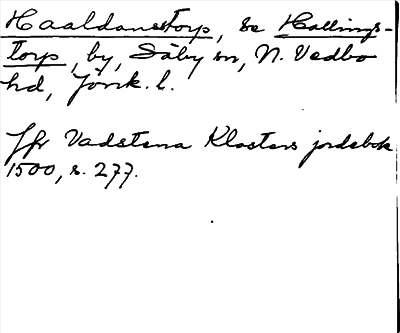 Haaldanstorp, se Hallings-
torp, by, Säby sn, N. Vedbo
hd, Jönk. l.
Jfr Vadstena Klosters jordebok
1500, s. 277.